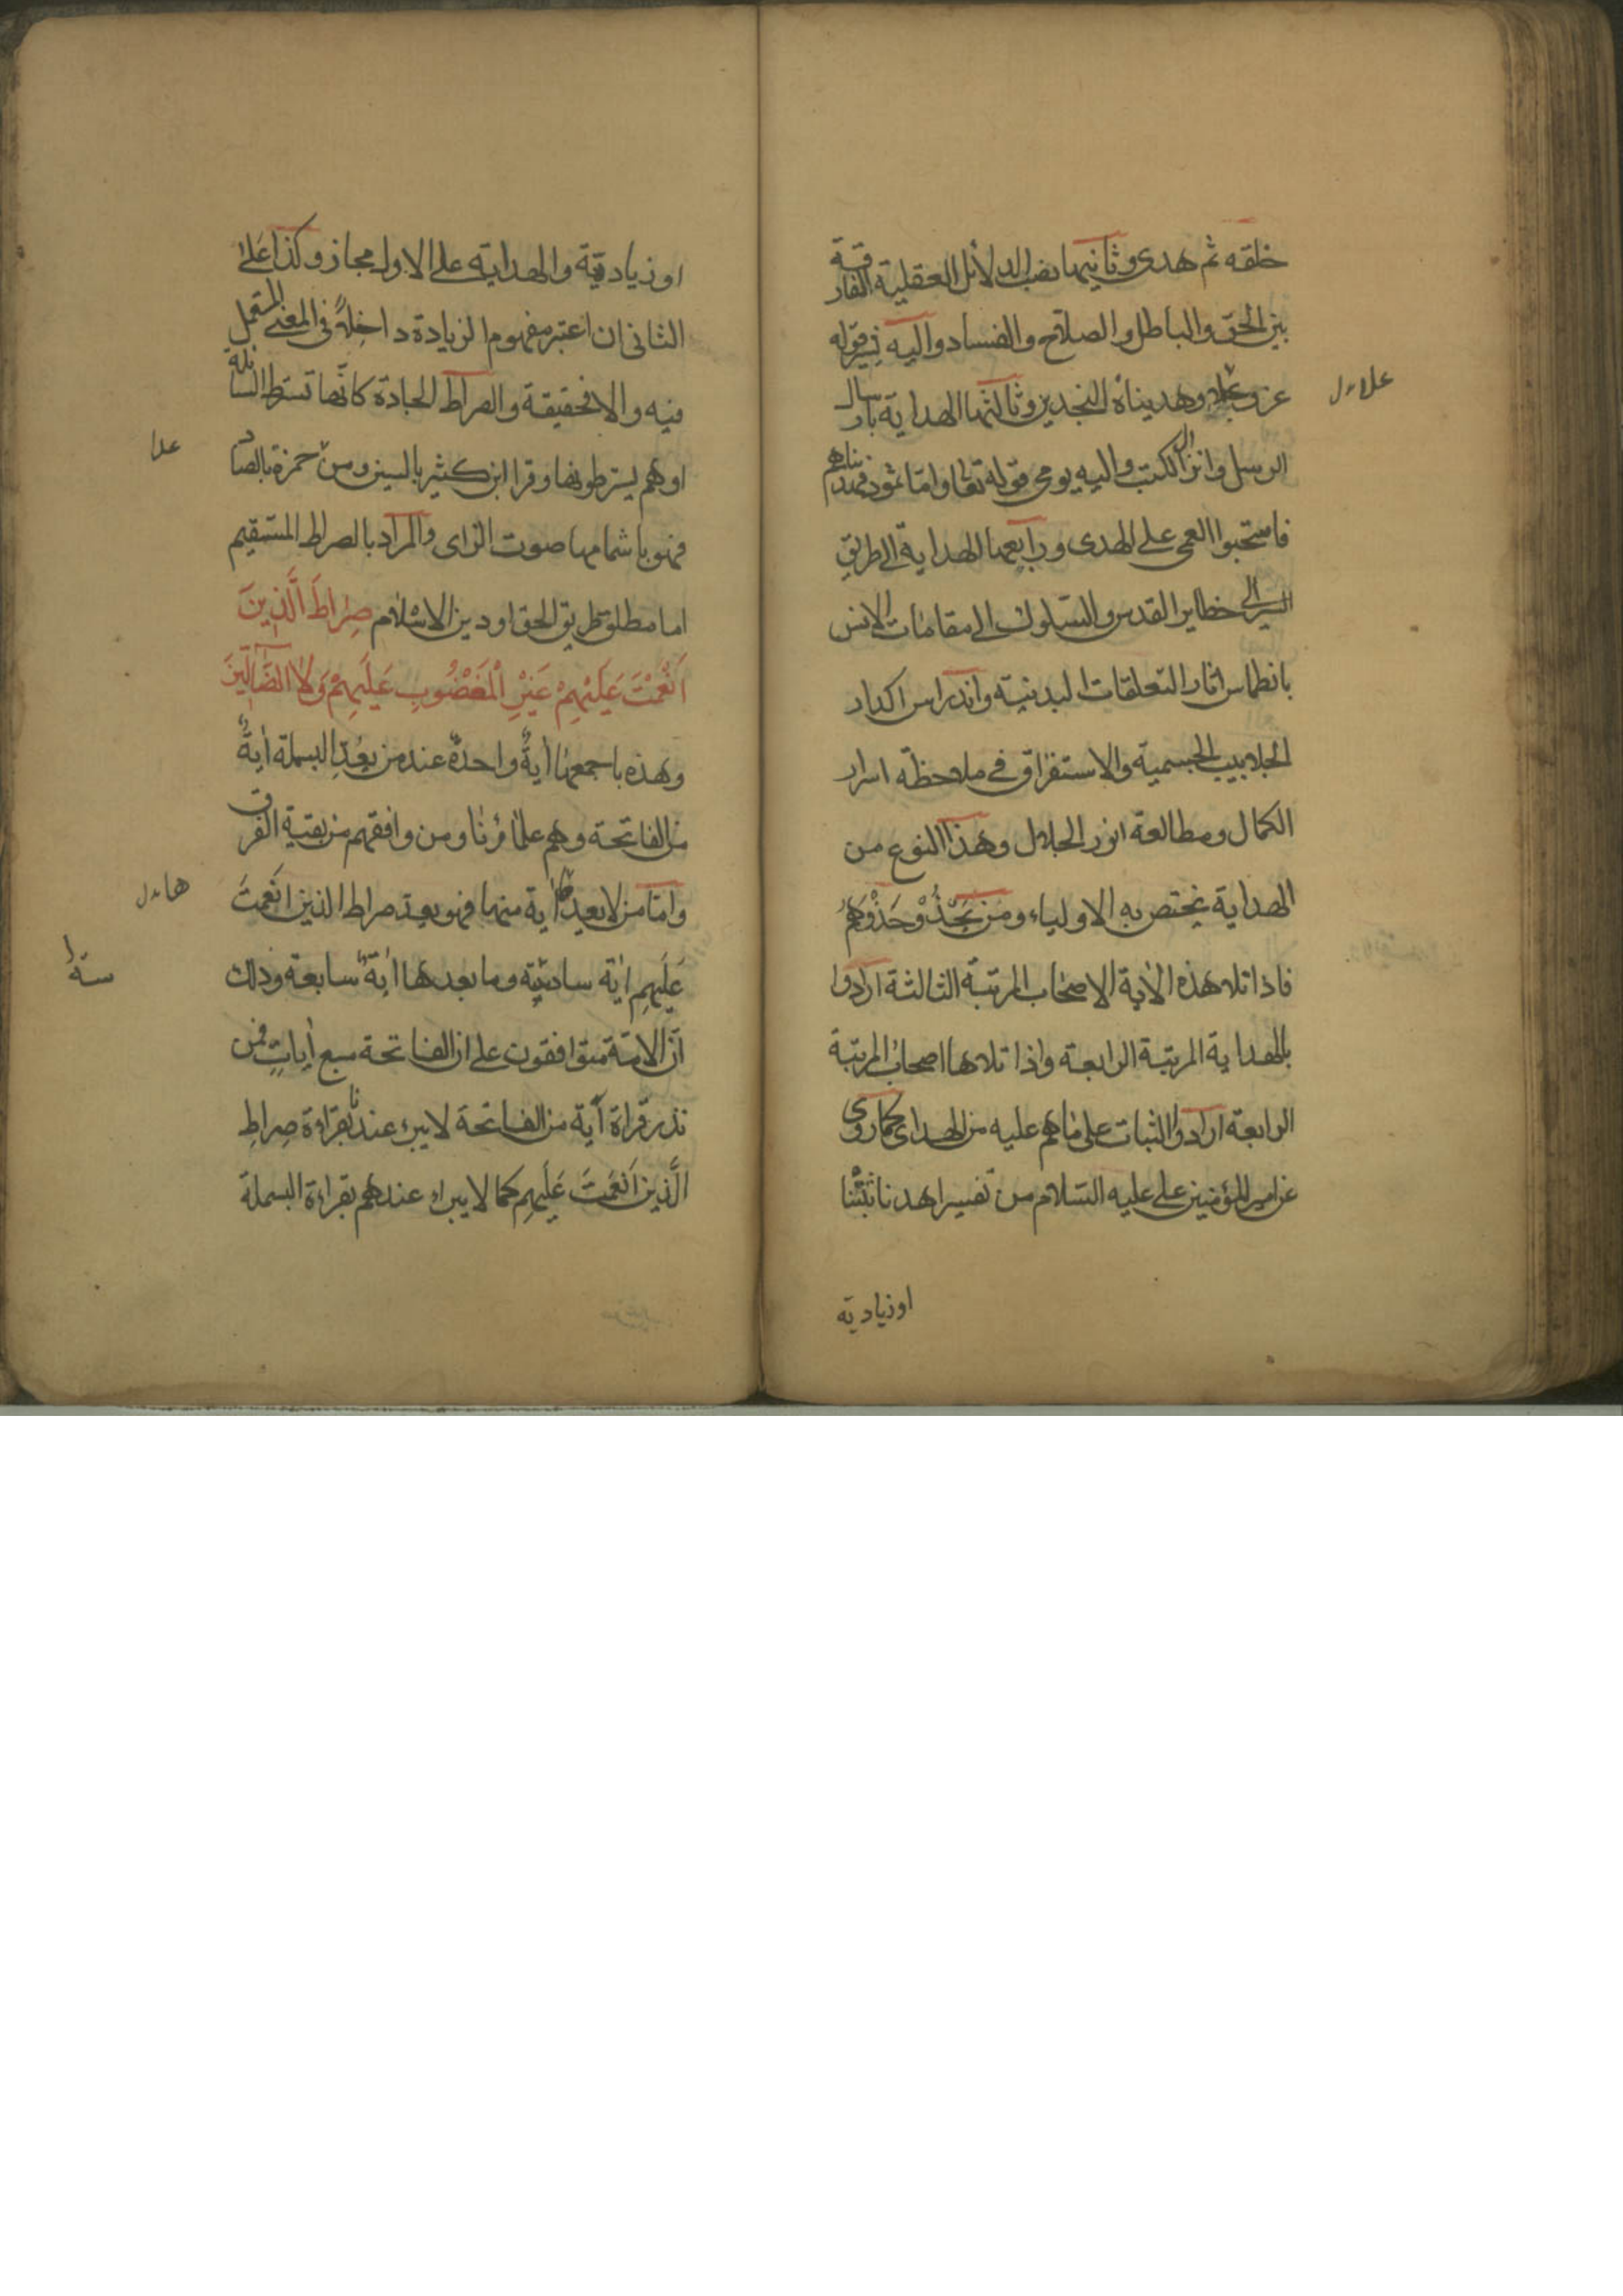 خلقه ثم هدى وثانيها نصب الدلائل العقلية الفارقة
بين الحق والباطل والصلاح والفساد واليه في قوله
عز وعلا وهديناه النجدين وثالثها الهداية بارسال
علا ءل
الرسل وانزال الكتب واليه يومى قوله تعالى واما ثمود فهديناهم
فاستحبوا العمى على الهدى ورابعها الهداية الى طريق
السير الى خطاير القدس والسلوك الى مقامات الانس
بانطماس اثار التعلقات البدنية واندراس اكدار
الجلابيب الجسمية والاستغراق في ملاحظة اسرار
الكمال ومطالعة انور الجلال وهذا النوع من
الهداية يختص به الاولياء ومن يَحْذُوْ حَذْوَهُم
فاذا تلا هذه الاية الا صحاب المرتبة الثالثة ارادوا
بالهداية المرتبة الرابعة واذا تلاها اصحاب المرتبة
الرابعة ارادوا الثبات على ماهم عليه من الهدى كما روى
عن امير المؤمنين على عليه السلام من تفسير اهدنا بثبتنا
او زيادية
او زيادقية والهداية على الاول مجاز وكذا على
الثانى ان اعتبر مفهوم الزيادة داخلةً في المعنى المستعمل
فيه والا فحقيقة والصراط الجادة كانّها تسترط السابلة
اوهم يسترطونها وقرا ابن كثير بالسين ومن حمزة بالصاد
علا
فهو باشمامها صوت الزاى والمراد بالصراط المستقيم
اما مطلق طريق الحق او دين الاسلام صِرٰاطَ الَّذِينَ
اَنْعَمْتَ عَلَيْهِمْ غَيْرِ الْمَغْضُوبِ عَلَيْهِمْ وَلَا الضَّآلِّينَ
وهذه باجمعها أيةٌ واحدةٌ عند من يعد البسملة أيةً
من الفاتحة وهم علماؤنا ومن وافقهم من بقية الفرق
واما من لا يعدها اية منها فهو يعد صراط الذين انعمتَ
ها ءل
عَلَيهِم اية سادسة وما بعدها ايةً سابعة وذلك
ستا
انّ الامّة متوافقون على ان الفاتحة سبع أياتٍ فمن
نذر قراة آية من الفاتحة لا يبرء عندنا بقراءة صِراطِ
الَّذين اَنْعَمتَ عَلَيهِم كما لا يبراء عندهم بقراءة البسملة